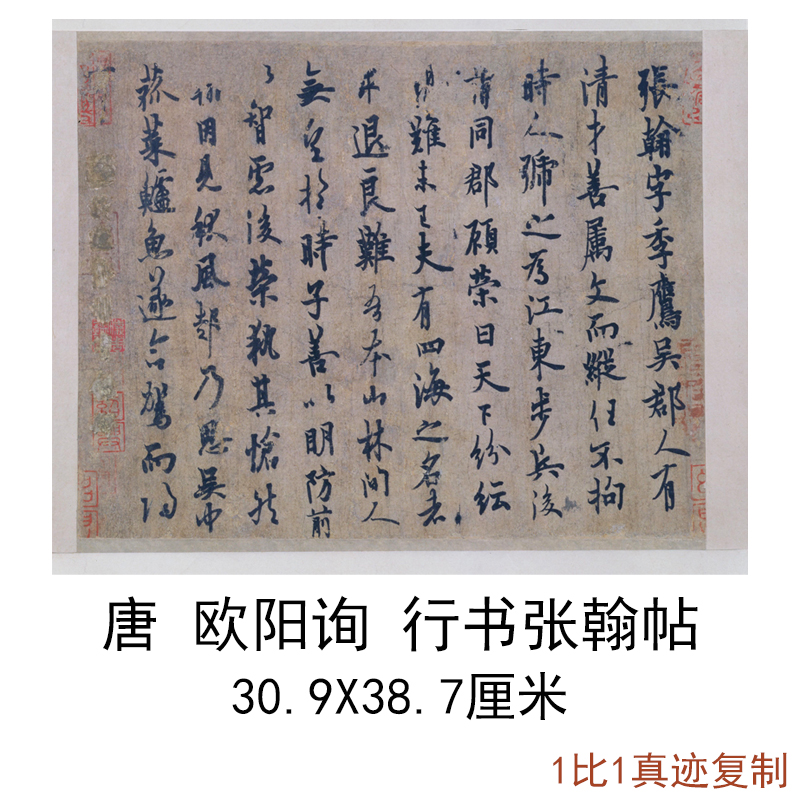 張翰字季鷹吳郡人有
清才善属文而縱任不拘
時人號之為江東步兵後
謂同郡顧榮曰天下紛紜
禍難未已夫有四海之名者
求退良難吾本山林間人
無望於時子善以明防前
以智慮後榮執其愴然
因見秋風起乃思吳中
菰菜鱸魚遂命駕而歸
唐 欧阳询 行书张翰帖
30.9X38.7厘米
1比1真迹复制